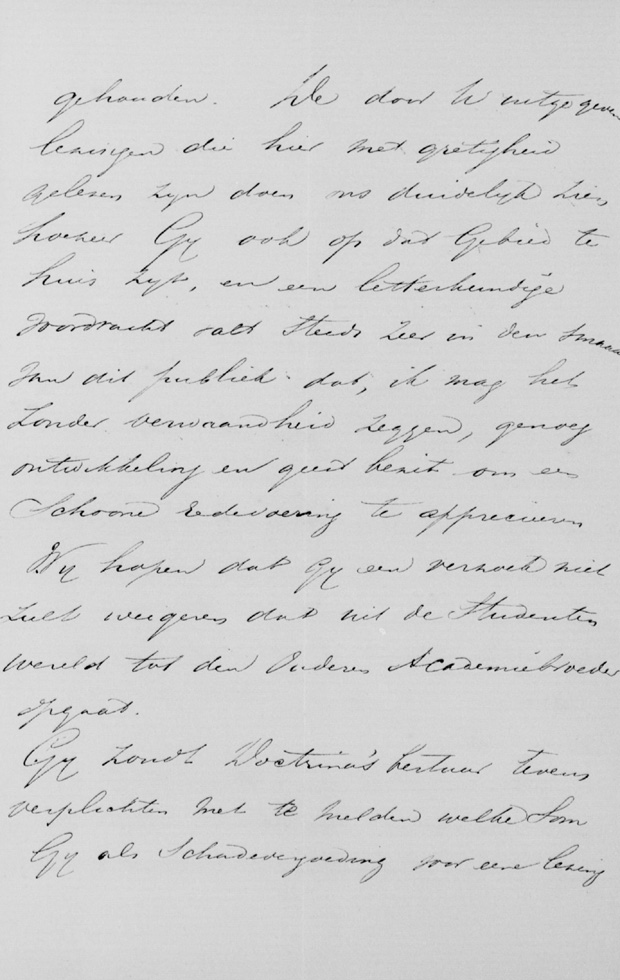 gehouden. De door U uitgegeven
lezingen die hier met gretigheid
gelezen zyn doen ons duidelyk zien,
hoezeer Gy ook op dat Gebied te
huis zyt, en een letterkundige
voordracht valt steeds zeer in den smaak
van dit publiek dat, ik mag het
zonder verwaandheid zeggen, genoeg
ontwikkeling en geest bezit om een
Schoone redevoering te apprecieeren
Wy hopen dat Gy een verzoek niet
zult weigeren dat uit de Studenten
wereld tot den Ouderen Academiebroeder
opgaat.
Gy zoudt Doctrina's bestuur tevens
verplichten met te melden welke Som
Gy als Schadevergoeding voor eene lezing